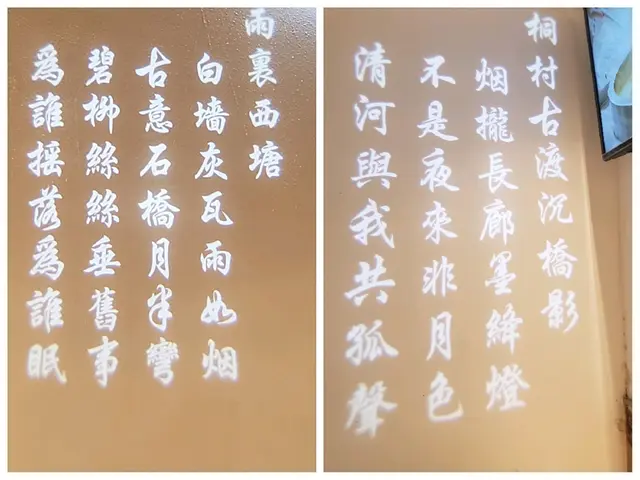 雨裏西塘
白墻灰瓦雨如烟
古意石橋月半彎
碧柳絲絲垂舊事
為誰摇落為誰眠
桐村古渡沉橋影
烟攏長廊墨絳燈
不是夜來非月色
清河與我共孤聲